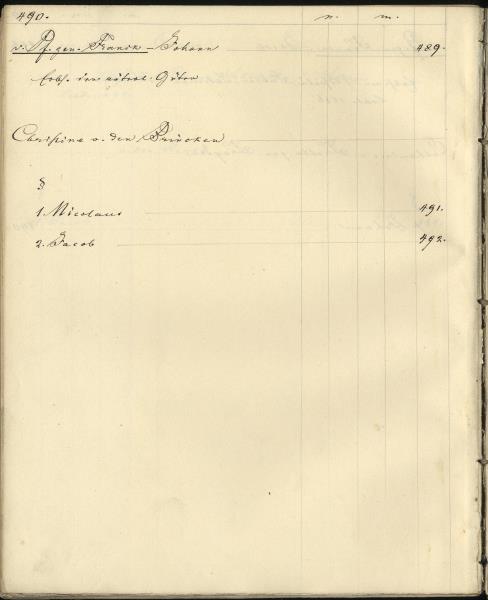 490. n. m.
v. Pf. gen. Franck - Johann 489.
Erbh. der väterl. Güter
Christine v. den Brincken
§
1. Nicolaus 491.
2. Jacob 492.